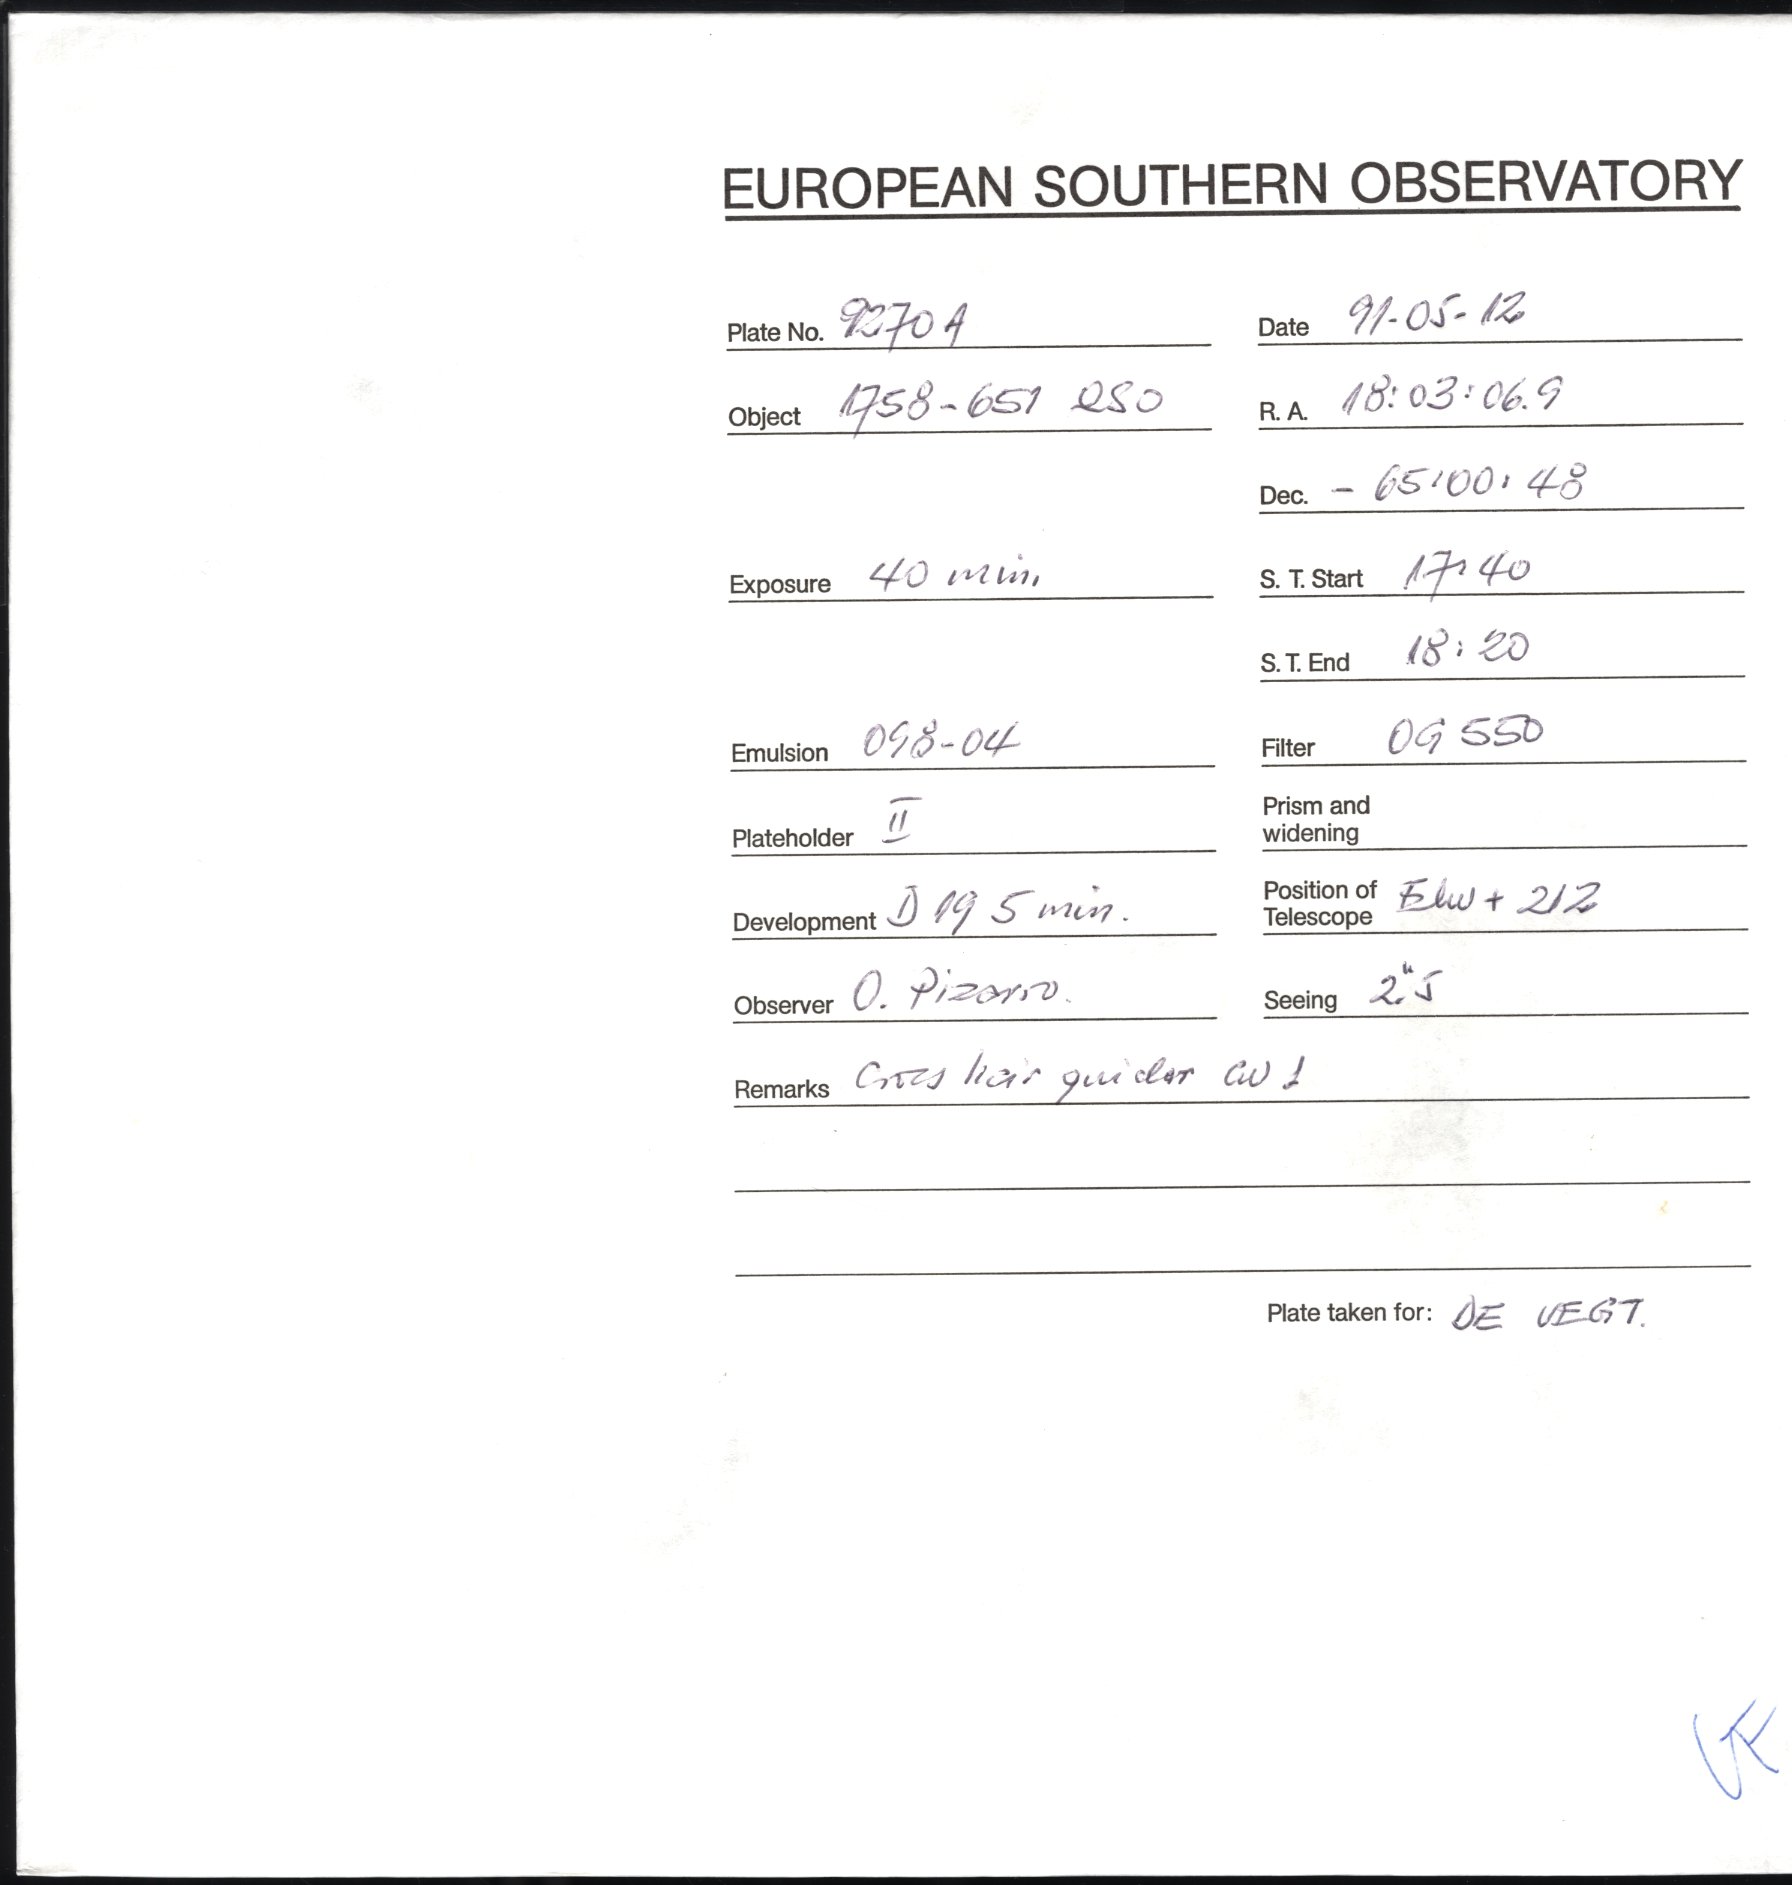 EUROPEAN SOUTHERN OBSERVATORY
Plate No. 9270A
Date 91-05-12
Object 1758-651 QSO
R. A. 18:03:06.9
Dec. - 65:00:48
Exposure 40 min.
S. T. Start 17:40
S. T. End 18:20
Emulsion 098-04
Filter OG 550
Plateholder II
Prism and
widening
Development D 19 5 min.
Position of
Telescope + 212
Observer O. Pizarro.
Seeing 2."5
Remarks Cross hair guider 1
Plate taken for: DE VEGT.